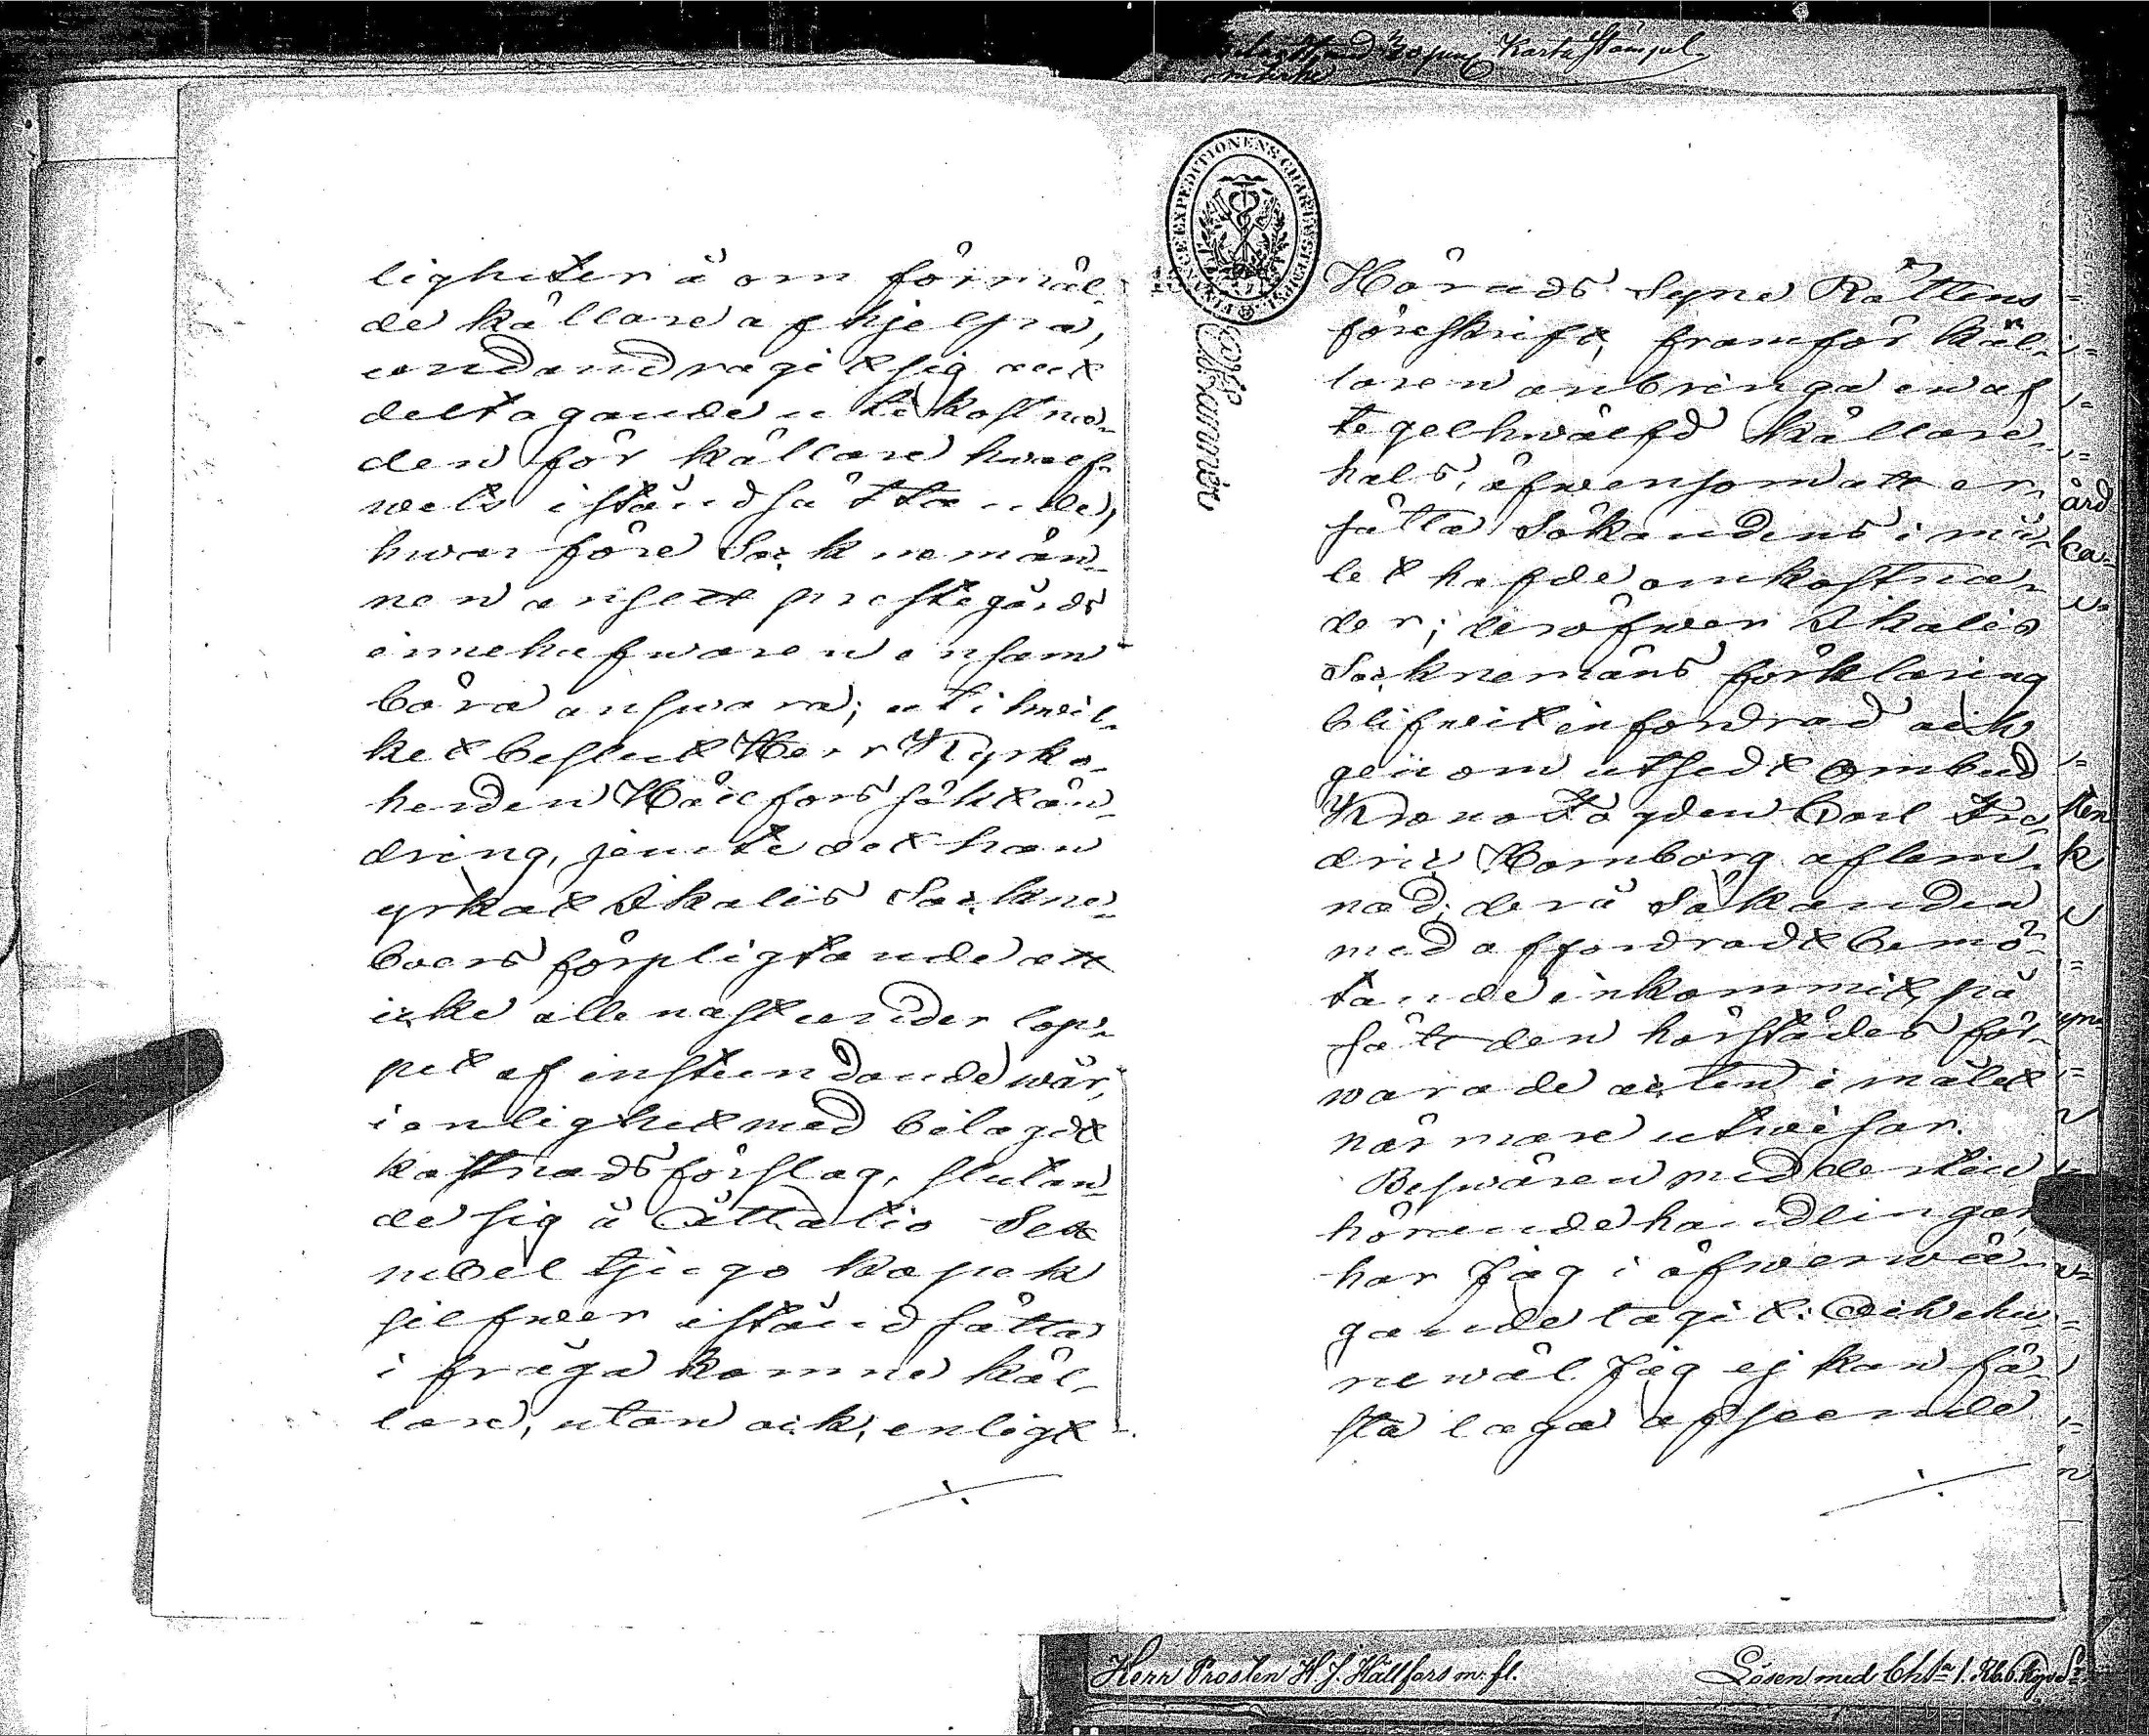 ligheter å om förmäl-
de källare afhjelpa,
undandragit sig allt
deltagande uti kostna-
den för källare hwalf-
wets iståndsättande,
hwarföre Socknemän-
nen ansett prestegårds
innehafwaren ensam
böra answara; uti hwil-
ket beslut Herr Kyrko-
herden Hällfors sökt än-
dring, jemte det han
yrkat Ikalis Sockne-
boers förpligtande att
icke allenast under lop-
pet af instundande wår,
i enlighet med bilagdt
kostnadsförslag, slutan-
de sig å Åttatio Sex
rubel tjugo kopek
silfwer iståndsätta
i fråga komne käl-
lare, utan ock, enligt
FINANCE EXPEDITIONENS CHARTÆ STEMPEL
Härads Syne Rättens
föreskrift, framför käl-
laren anbringa en af
tegel hwälfd källare-
hals, äfwensom att er-
sätta Sökandens i må-
let hafde omkostna-
der; deröfwer Ikalis
Socknemäns förklaring
blifwit infordrad och
genom utsedt ombud
Kronofogden Carl Fre-
dric Hornborg aflem-
nad; derå Sökanden
med affordradt bemö-
tande inkommit, på
sätt den härstädes för-
warade acten i målet
närmare utwisar.
Beswären med dertill
hörande handlingar
har Jag i öfwerwä-
gande tagit: Och ehu-
ruwäl Jag ej kan fä-
sta laga afseende
Herr Prosten H. J. Hällfors m. fl.
Lösen med Ch